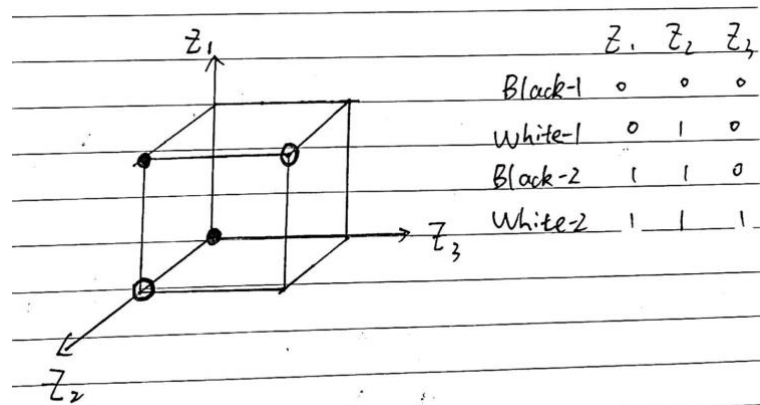 Z1
Z3
Z2
Z1 Z2 Z3
Black-1 0 0 0
White-1 0 1 0
Black-2 1 1 0
White-2 1 1 1